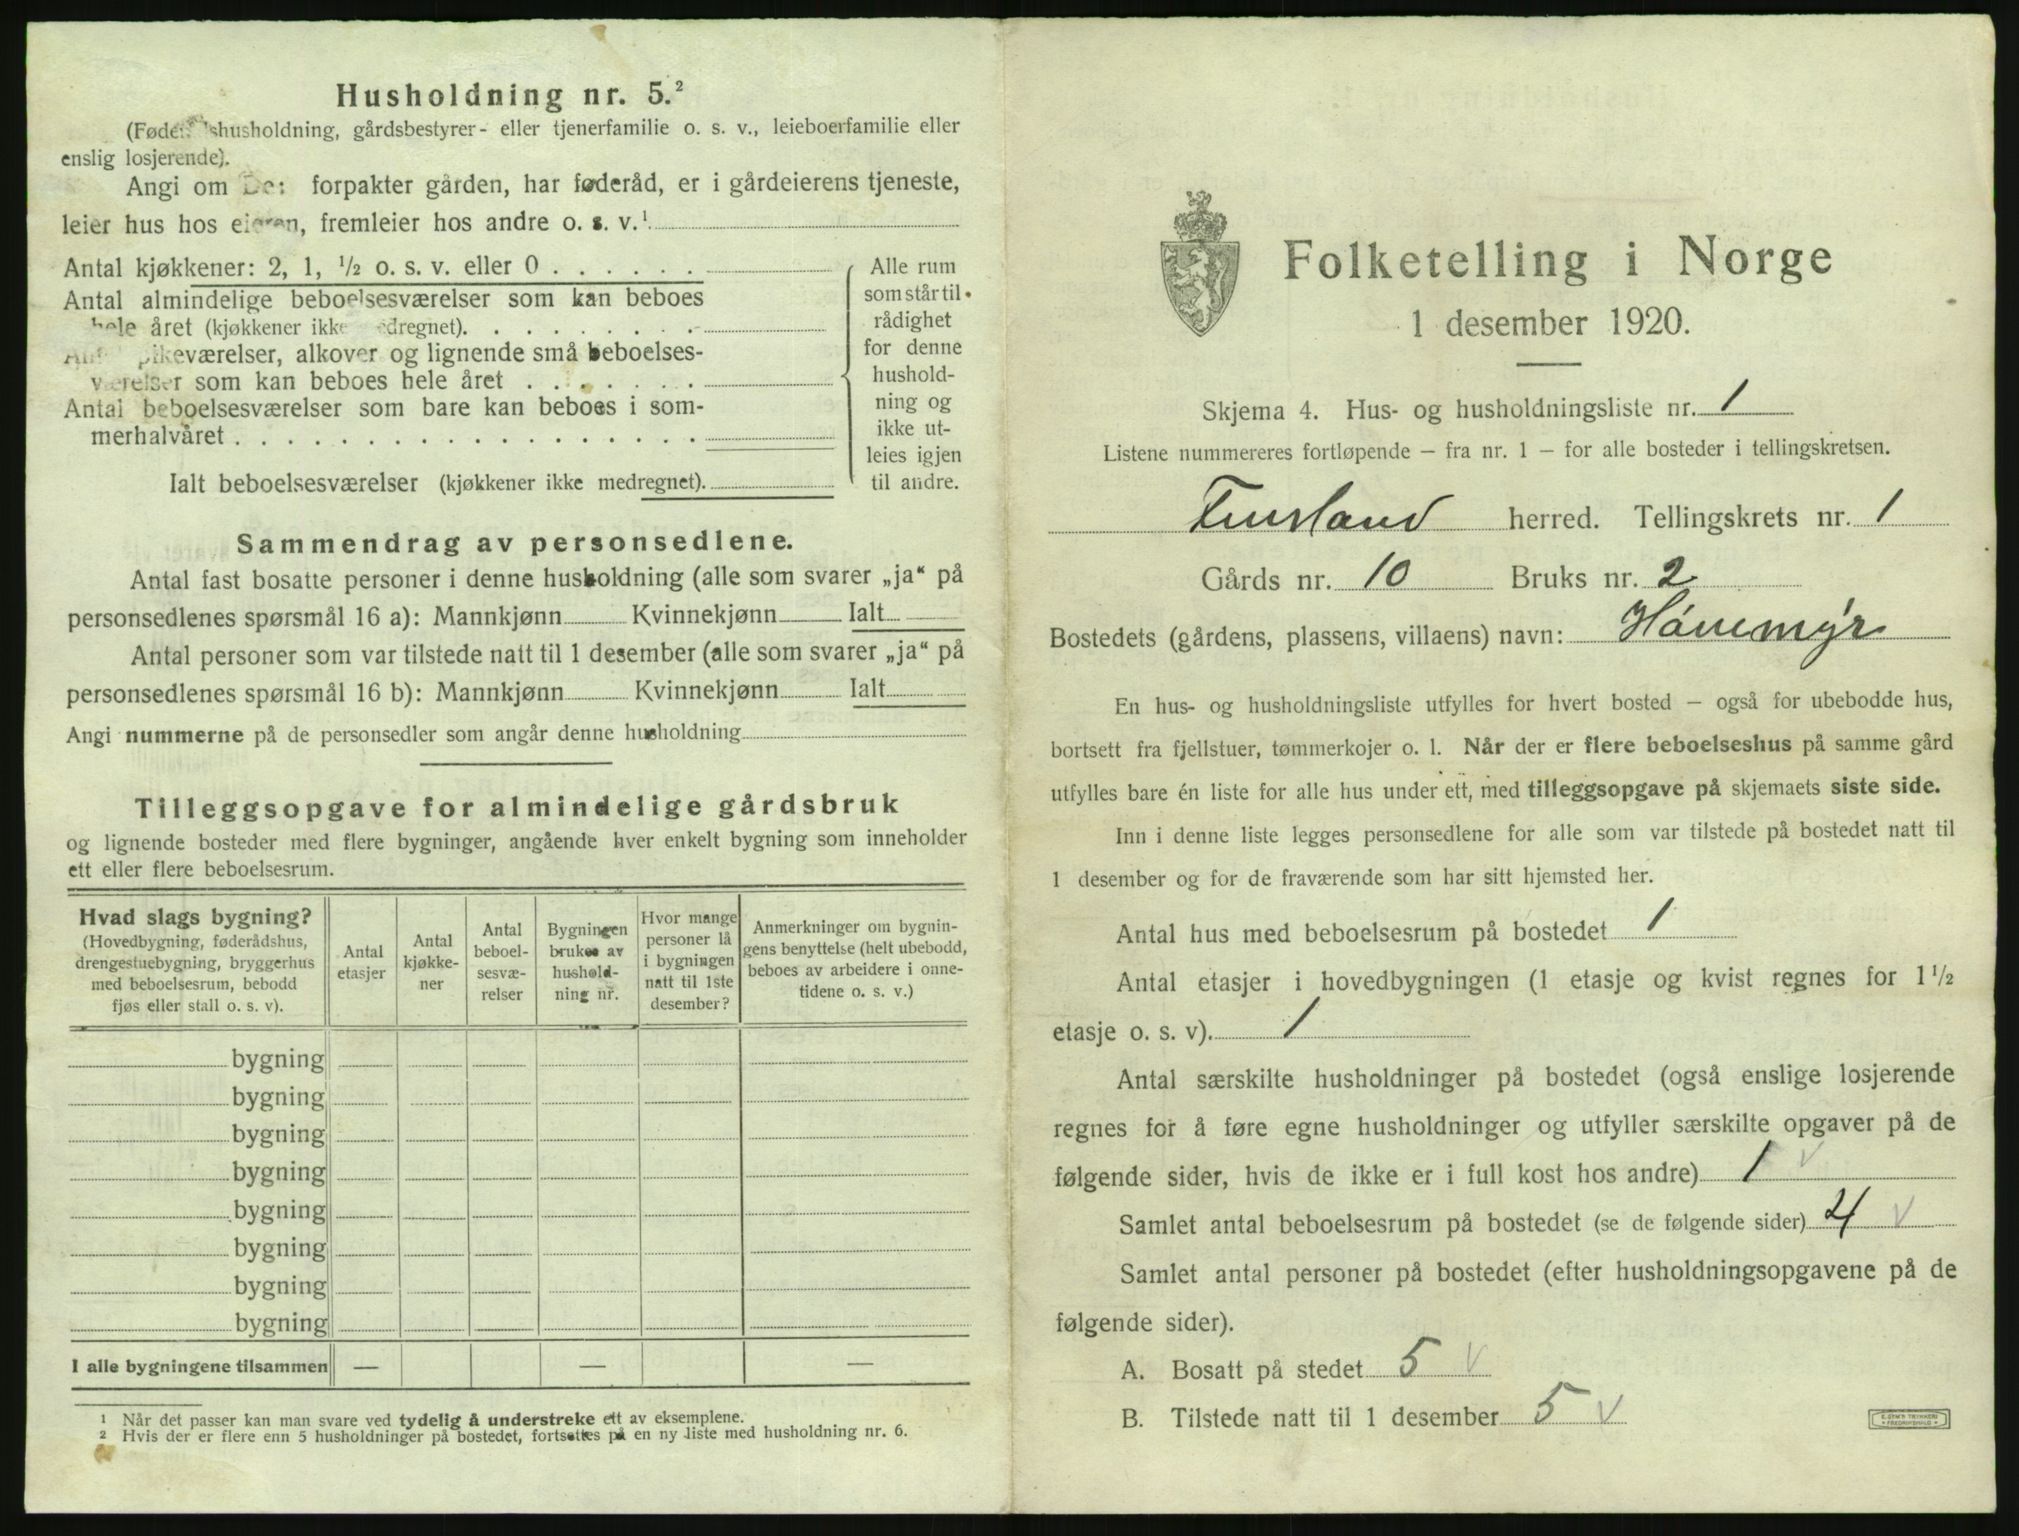 Husholdning nr. 5.²
(Føderådshusholdning, gårdsbestyrer- eller tjenerfamilie o. s. v., leieboerfamilie eller
enslig losjerende).
Angi om De: forpakter gården, har føderåd, er i gårdeierens tjeneste,
leier hus hos eieren, fremleier hos andre o. s. v.¹
Antal kjøkkener: 2, 1, ½ o. s. v. eller 0 . . . . . .
Antal almindelige beboelsesværelser som kan beboes
hele året (kjøkkener ikke medregnet). . . . . . . . .
Antal pikeværelser, alkover og lignende små beboelses-
værelser som kan beboes hele året . . . . . . .
Antal beboelsesværelser som bare kan beboes i som-
merhalvåret . . . . . . . . . . . . . . . . .
Ialt beboelsesværelser (kjøkkener ikke medregnet).
Alle rum
som står til
rådighet
for denne
hushold-
ning og
ikke ut-
leies igjen
til andre.
Sammendrag av personsedlene.
Antal fast bosatte personer i denne husholdning (alle som svarer „ja“ på
personsedlenes spørsmål 16 a): Mannkjønn Kvinnekjønn Ialt
Antal personer som var tilstede natt til 1 desember (alle som svarer „ja“ på
personsedlenes spørsmål 16 b): Mannkjønn Kvinnekjønn Ialt
Angi nummerne på de personsedler som angår denne husholdning
Tilleggsopgave for almindelige gårdsbruk
og lignende bosteder med flere bygninger, angående hver enkelt bygning som inneholder
ett eller flere beboelsesrum.
Hvad slags bygning?
(Hovedbygning, føderådshus,
drengestuebygning, bryggerhus
med beboelsesrum, bebodd
fjøs eller stall o. s. v).
Antal
etasjer
Antal
kjøkke-
ner
Antal
beboel-
sesvæ-
relser
Bygningen
brukes av
hushold-
ning nr.
Hvor mange
personer lå
i bygningen
natt til 1ste
desember?
Anmerkninger om bygnin-
gens benyttelse (helt ubebodd,
beboes av arbeidere i onne-
tidene o. s. v.)
bygning
bygning
bygning
bygning
bygning
bygning
bygning
bygning
I alle bygningene tilsammen — — —
1 Når det passer kan man svare ved tydelig å understreke ett av eksemplene.
2 Hvis der er flere enn 5 husholdninger på bostedet, fortsettes på en ny liste med husholdning nr. 6.
Folketelling i Norge
1 desember 1920.
Skjema 4. Hus- og husholdningsliste nr. 1
Listene nummereres fortløpende – fra nr. 1 – for alle bosteder i tellingskretsen.
Finsland herred. Tellingskrets nr. 1
Gårds nr. 10 Bruks nr. 2
Bostedets (gårdens, plassens, villaens) navn: Hónemyr
En hus- og husholdningsliste utfylles for hvert bosted – også for ubebodde hus,
bortsett fra fjellstuer, tømmerkojer o. l. Når der er flere beboelseshus på samme gård
utfylles bare én liste for alle hus under ett, med tilleggsopgave på skjemaets siste side.
Inn i denne liste legges personsedlene for alle som var tilstede på bostedet natt til
1 desember og for de fraværende som har sitt hjemsted her.
Antal hus med beboelsesrum på bostedet 1
Antal etasjer i hovedbygningen (1 etasje og kvist regnes for 1 ½
etasje o. s. v). 1
Antal særskilte husholdninger på bostedet (også enslige losjerende
regnes for å føre egne husholdninger og utfyller særskilte opgaver på de
følgende sider, hvis de ikke er i full kost hos andre) 1 v
Samlet antal beboelsesrum på bostedet (se de følgende sider) 4 v
Samlet antal personer på bostedet (efter husholdningsopgavene på de
følgende sider).
A. Bosatt på stedet 5 v
B. Tilstede natt til 1 desember 5 v